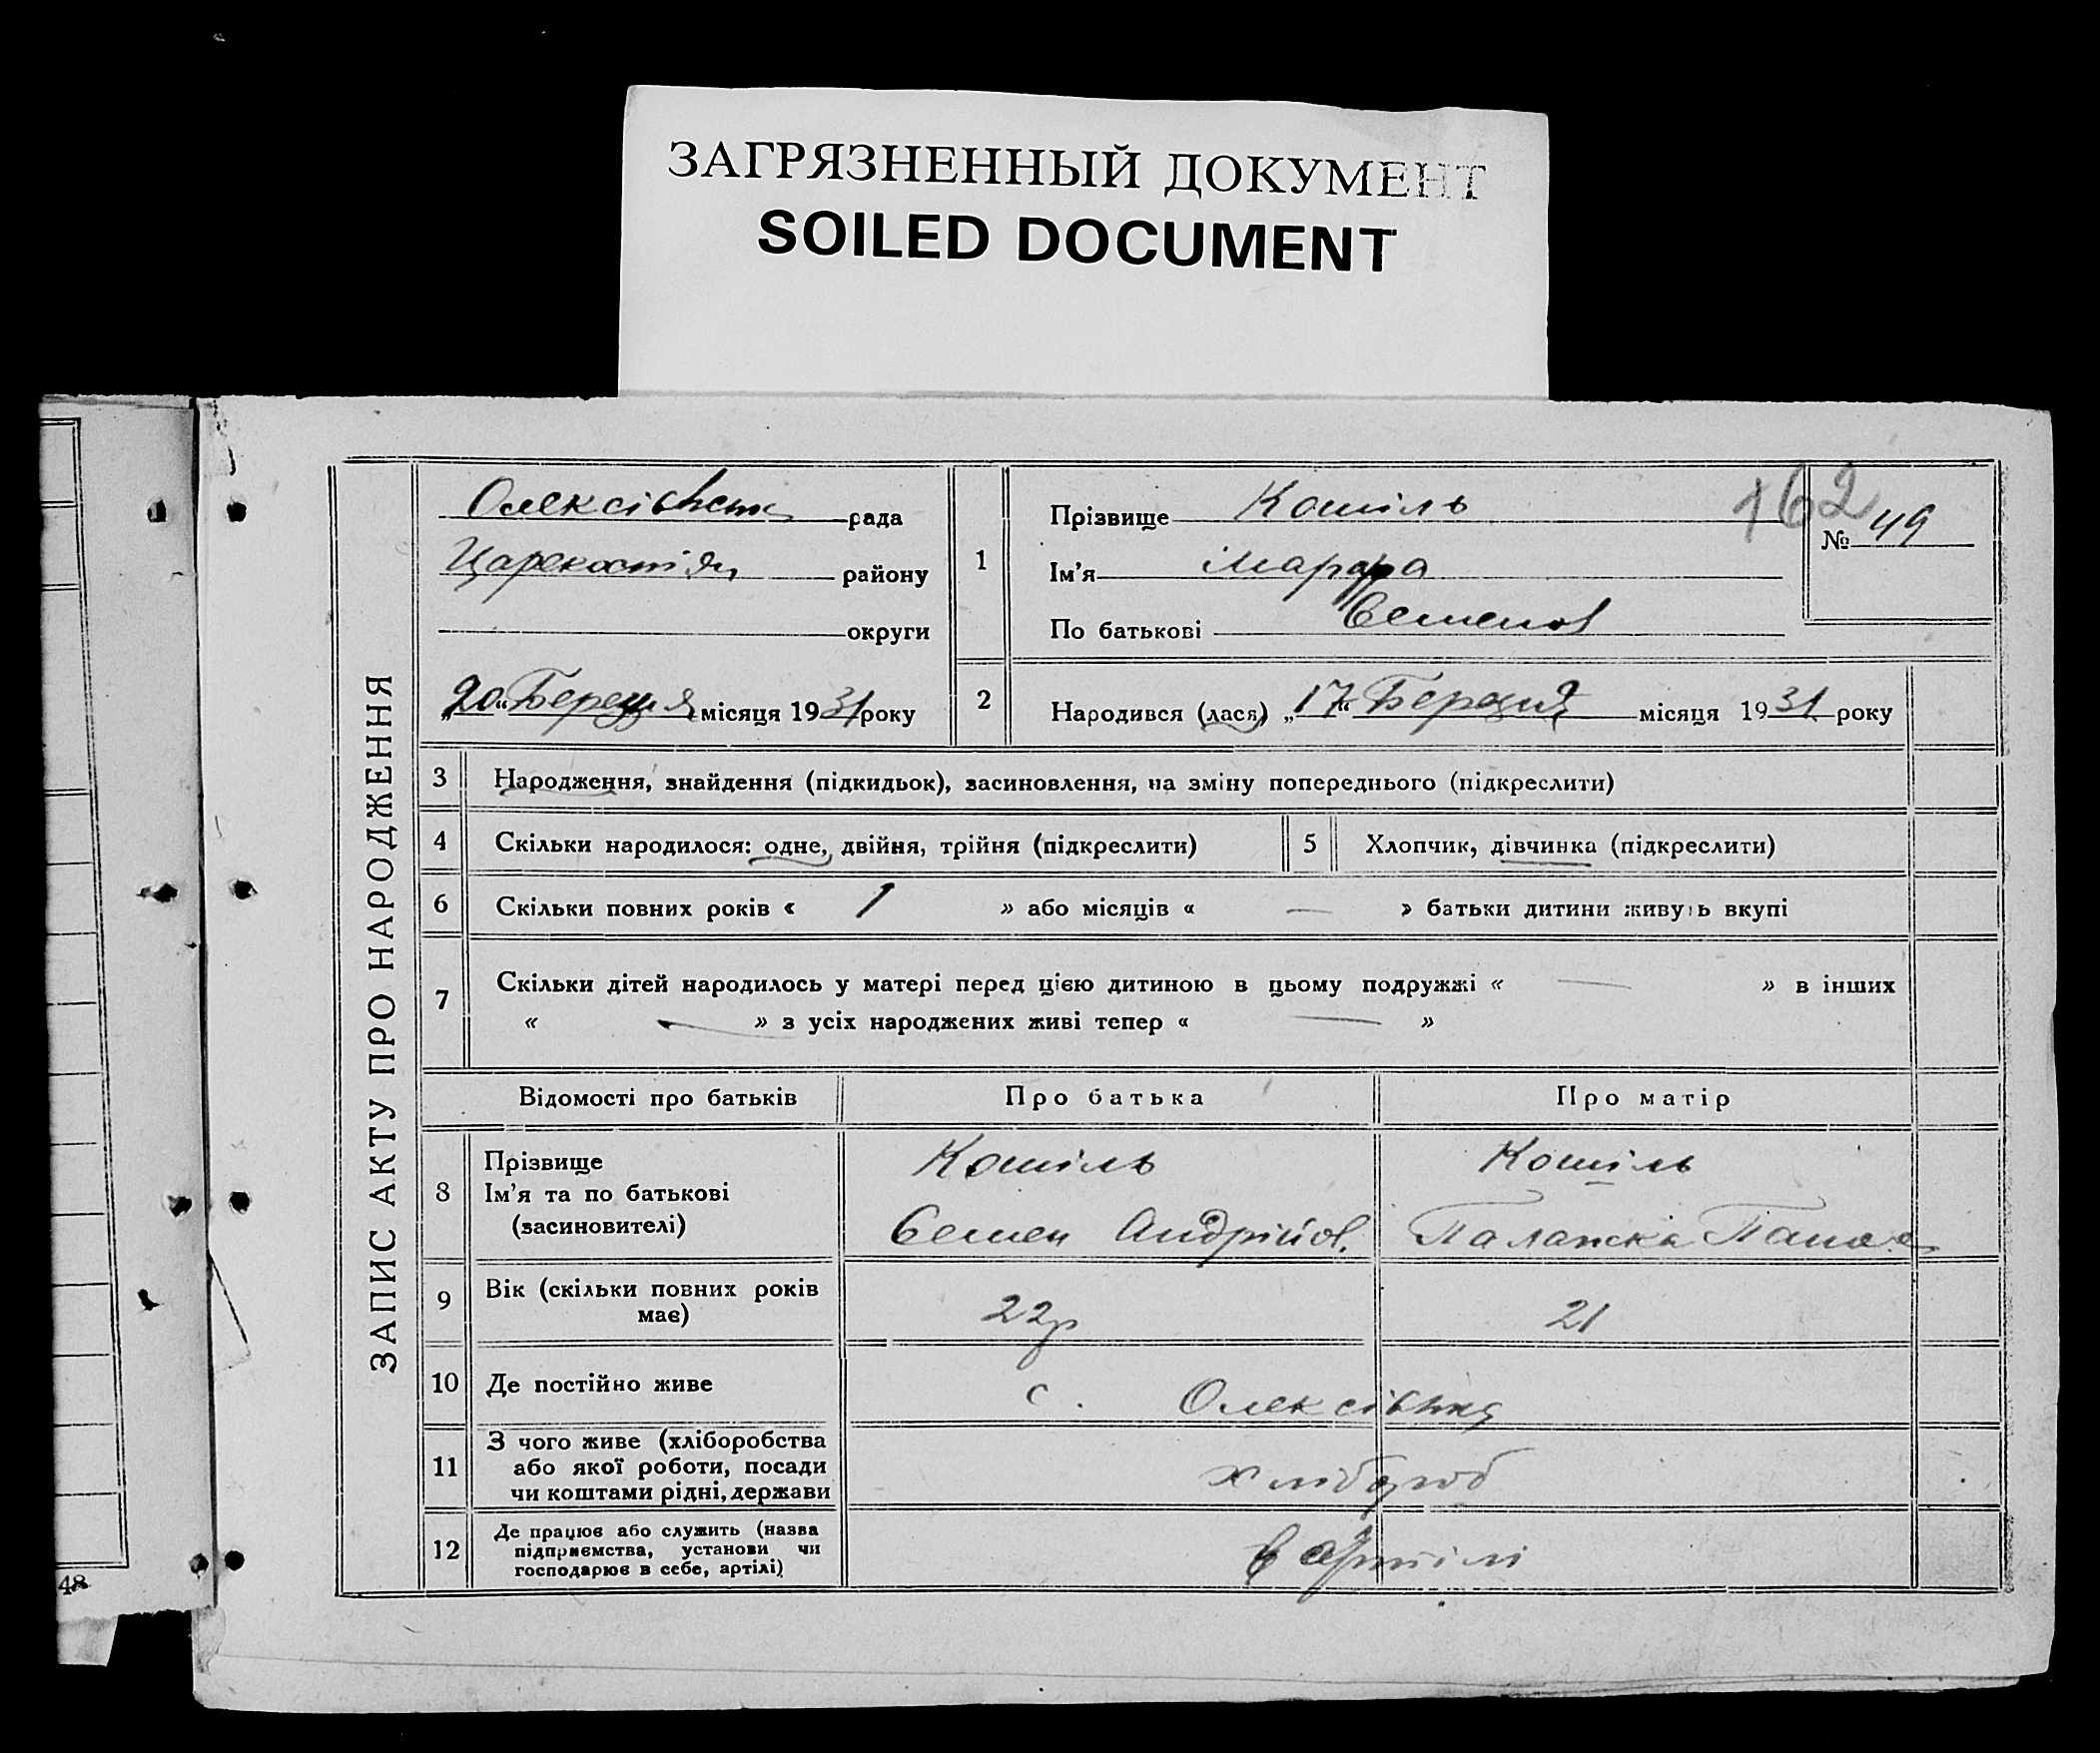 ЗАГРЯЗНЕННЫЙ ДОКУМЕНТ
SOILED DOCUMENT
ЗАПИС АКТУ ПРО НАРОДЖЕННЯ
рада
району
округи
„20“ Березня місяця 1931 року
1
Прізвище Кошіль
Ім'я
По батькові Семенов
162
№ 49
2
Народився (лася) „17“ Березня місяця 1931 року
3 Народження, знайдення (підкидьок), засиновлення, на зміну попереднього (підкреслити)
4 Скільки народилося: одне, двійня, трійня (підкреслити)
5 Хлопчик, дівчинка (підкреслити)
6 Скільки повних років « 1 » або місяців « — » батьки дитини живуть вкупі
7 Скільки дітей народилось у матері перед цією дитиною в цьому подружжі « — » в інших
« — » з усіх народжених живі тепер « — »
Відомості про батьків Про батька Про матір
8 Прізвище Кошіль Кошіль
Ім'я та по батькові
(засиновителі) Семен Андрійов.
9 Вік (скільки повних років
має) 22р 21
10 Де постійно живе с. Олексівка
11 З чого живе (хліборобства
або якої роботи, посади
чи коштами рідні, держави хлібороб
12 Де працює або служить (назва
підприємства, установи чи
господарює в себе, артілі) в артілі
48